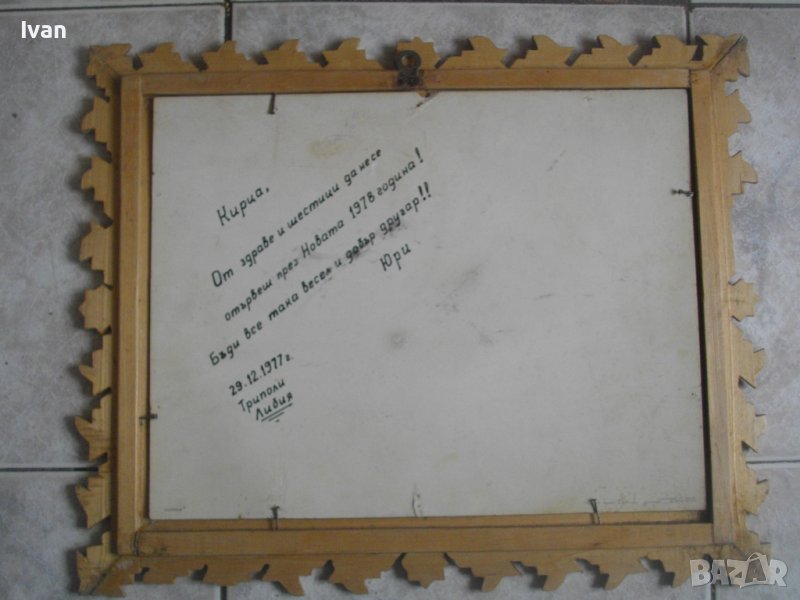 Ivan
Кирца,
От здраве и шестици да несе
отървеш през Новата 1978 година!
Бъди все така весел и добър другар!!
Юри
29.12.1977г.
Триполи
Ливия
BAZAR